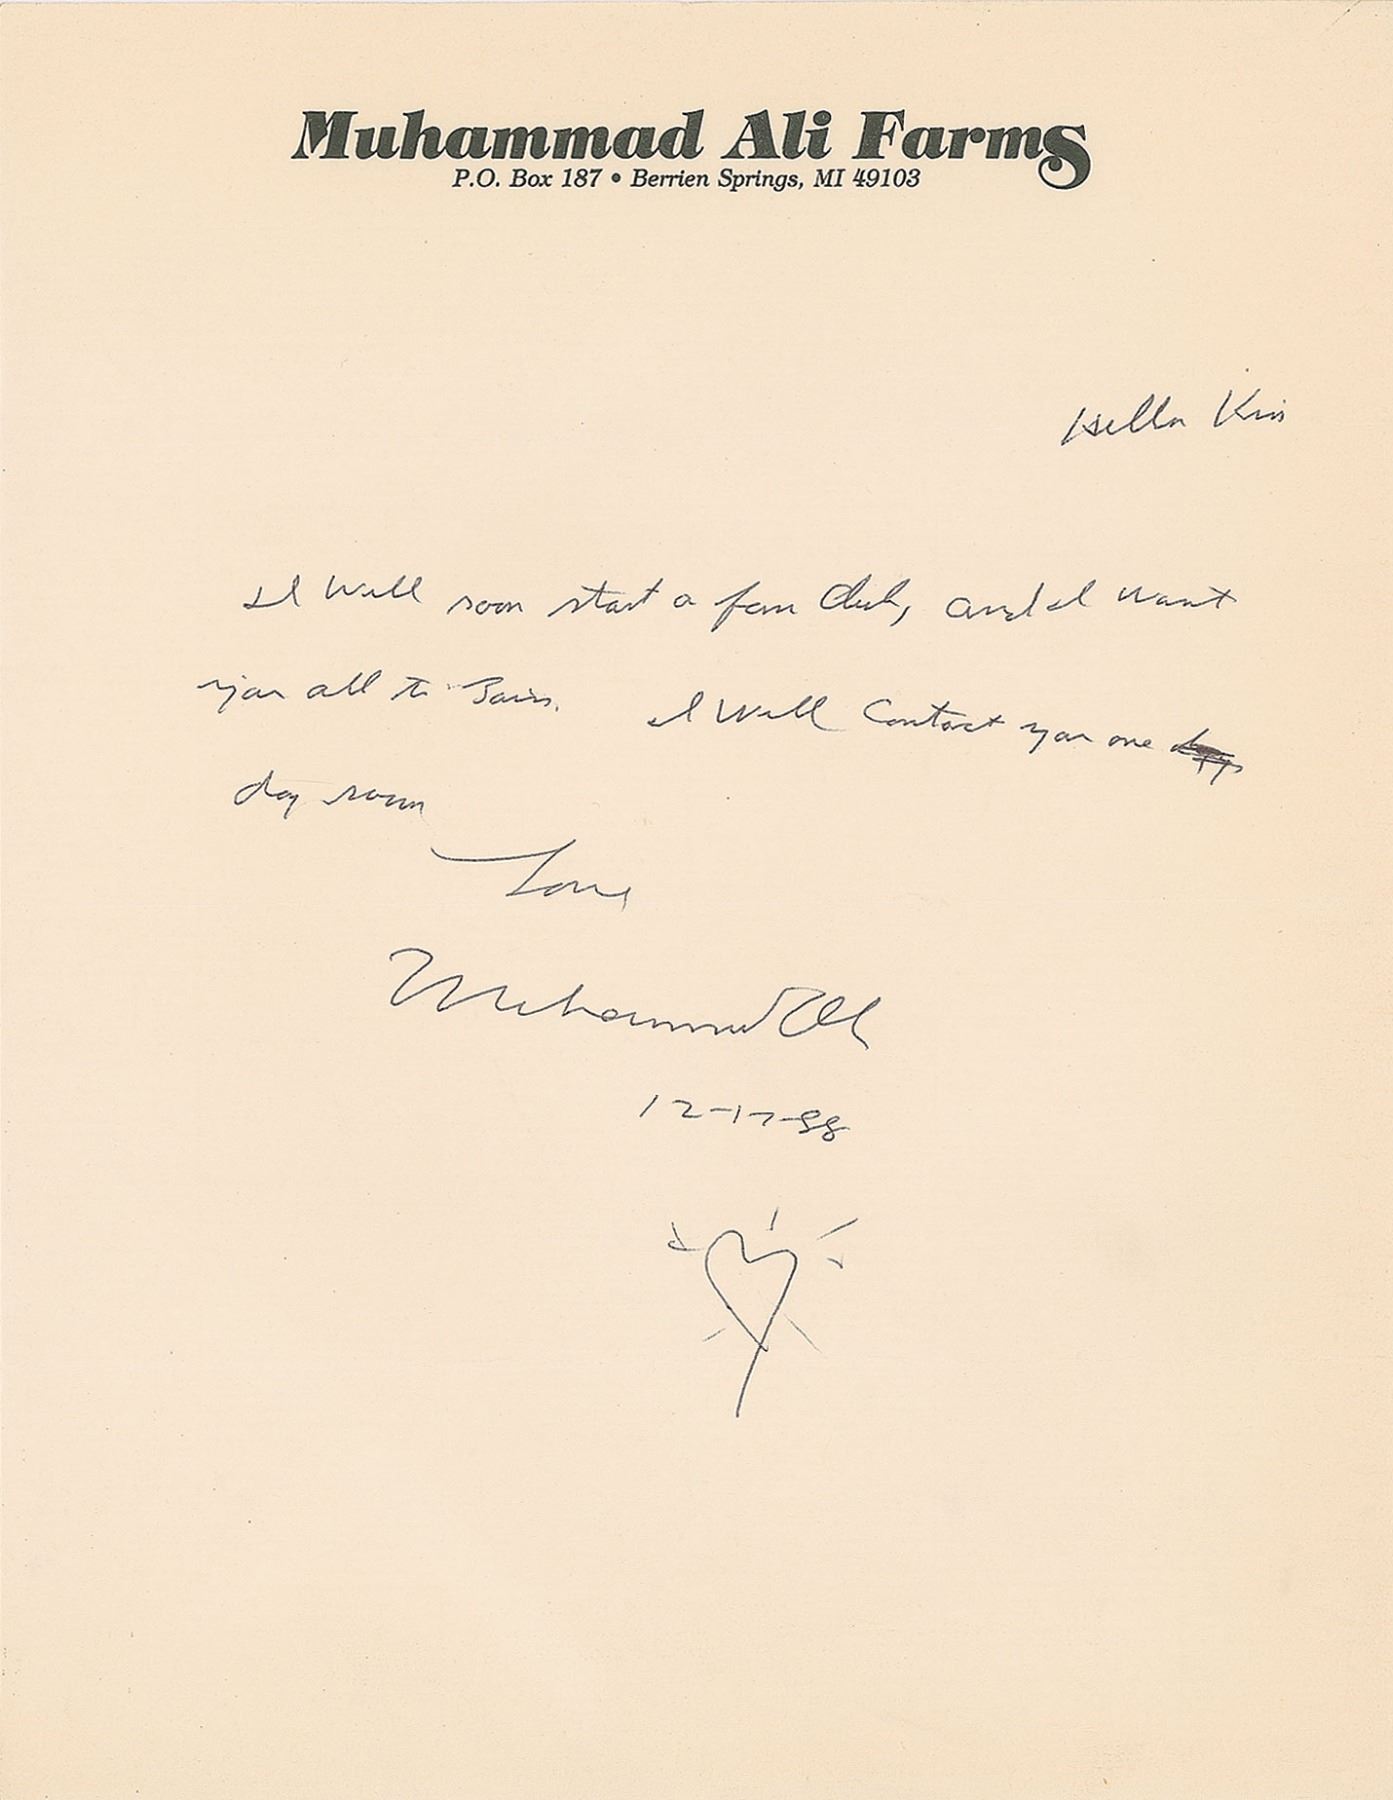 Muhammad Ali Farms
P.O. Box 187 • Berrien Springs, MI 49103
Hello Kris
I Will soon start a fan Club, and I want
you all to Join. I Will Contact you one
day soon
Love
Muhammad Ali
12-17-88